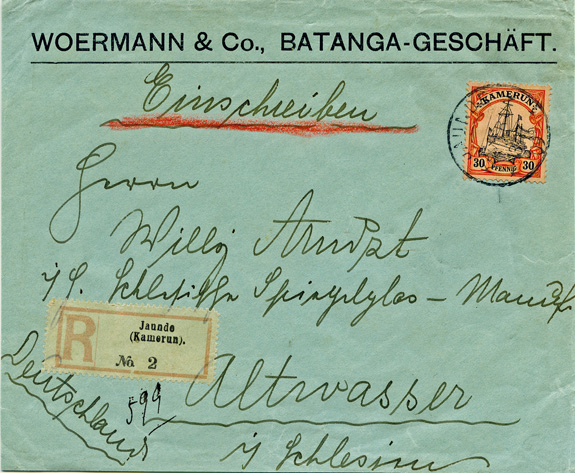 WOERMANN & Co., BATANGA-GESCHÄFT.
Einschreiben
KAMERUN
30 30
PFENNIG
Herrn
Willy Arndt
i/S. Schlesische Spiegelglas – Manuf
R
Jaunde
(Kamerun).
No. 2
Altwasser
599
Deutschland
i/ Schlesien